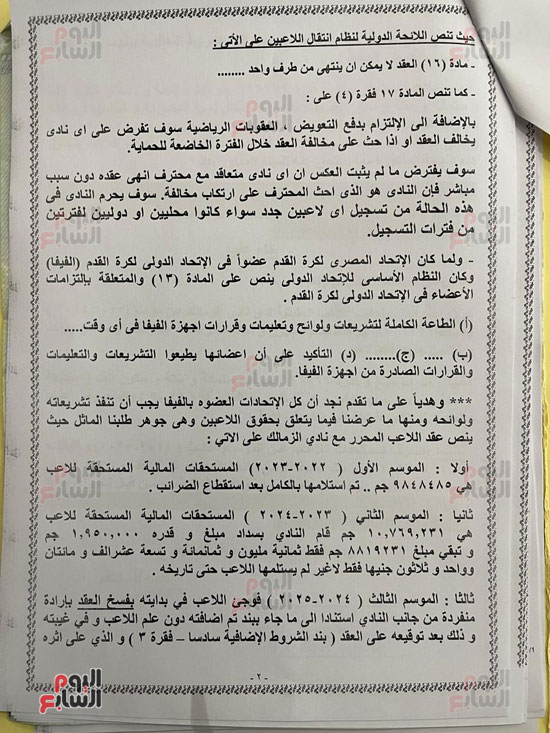 حيث تنص اللائحة الدولية لنظام انتقال اللاعبين على الآتي :
- مادة (١٦) العقد لا يمكن ان ينتهى من طرف واحد ........
- كما تنص المادة ١٧ فقرة (٤) على :
بالإضافة الى الإلتزام بدفع التعويض ، العقوبات الرياضية سوف تفرض على اى نادى
يخالف العقد او اذا حث على مخالفة العقد خلال الفترة الخاضعة للحماية.
سوف يفترض ما لم يثبت العكس ان اى نادى متعاقد مع محترف انهى عقده دون سبب
مباشر فإن النادى هو الذى احث المحترف على ارتكاب مخالفة. سوف يحرم النادى فى
هذه الحالة من تسجيل اى لاعبين جدد سواء كانوا محليين او دوليين لفترتين
من فترات التسجيل.
- ولما كان الإتحاد المصرى لكرة القدم عضواً فى الإتحاد الدولى لكرة القدم (الفيفا)
وكان النظام الأساسى للإتحاد الدولى ينص على المادة (١٣) والمتعلقة بإلتزامات
الأعضاء فى الإتحاد الدولى لكرة القدم .
(أ) الطاعة الكاملة لتشريعات ولوائح وتعليمات وقرارات اجهزة الفيفا فى أى وقت.....
(ب) ..... (ج)........ (د) التأكيد على أن اعضائها يطيعوا التشريعات والتعليمات
والقرارات الصادرة من اجهزة الفيفا.
*** وهدياً على ما تقدم نجد أن كل الإتحادات العضوه بالفيفا يجب أن تنفذ تشريعاته
ولوائحه ومنها ما عرضنا فيما يتعلق بحقوق اللاعبين وهى جوهر طلبنا الماثل حيث
ينص عقد اللاعب المحرر مع نادي الزمالك على الاتي :
أولا : الموسم الأول ( ٢٠٢٢-٢٠٢٣) المستحقات المالية المستحقة للاعب
هي ٩٨٤٨٤٨٥ جم .. تم استلامها بالكامل بعد استقطاع الضرائب .
ثانيا : الموسم الثاني ( ٢٠٢٣-٢٠٢٤ ) المستحقات المالية المستحقة للاعب
هي ١٠,٧٦٩,٢٣١ جم قام النادي بسداد مبلغ و قدره ١,٩٥٠,٠٠٠ جم
و تبقي مبلغ ٨٨١٩٢٣١ جم فقط ثمانية مليون و ثمانمائة و تسعة عشرالف و مائتان
وواحد و ثلاثون جنيها فقط لاغير لم يستلمها اللاعب حتى تاريخه .
ثالثا : الموسم الثالث ( ٢٠٢٤-٢٠٢٥ ) فوجئ اللاعب في بدايته بفسخ العقد بإرادة
منفردة من جانب النادي استنادا الى ما جاء ببند تم اضافته دون علم اللاعب و في غيبته
و ذلك بعد توقيعه على العقد ( بند الشروط الإضافية سادسا – فقرة ٣ ) و الذي على اثره
- ٢ -
اليوم السابع